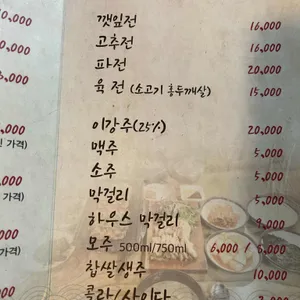 0,000
깻잎전 16,000
,000
고추전 16,000
파전 20,000
육전 (소고기 홍두깨살) 15,000
,000
이강주(25%) 20,000
인 가격)
맥주 5,000
,000
소주 5,000
가격)
막걸리 5,000
,000
하우스 막걸리 9,000
모주 500ml/750ml 6,000 / 8,000
찹쌀생주 10,000
콜라/사이다